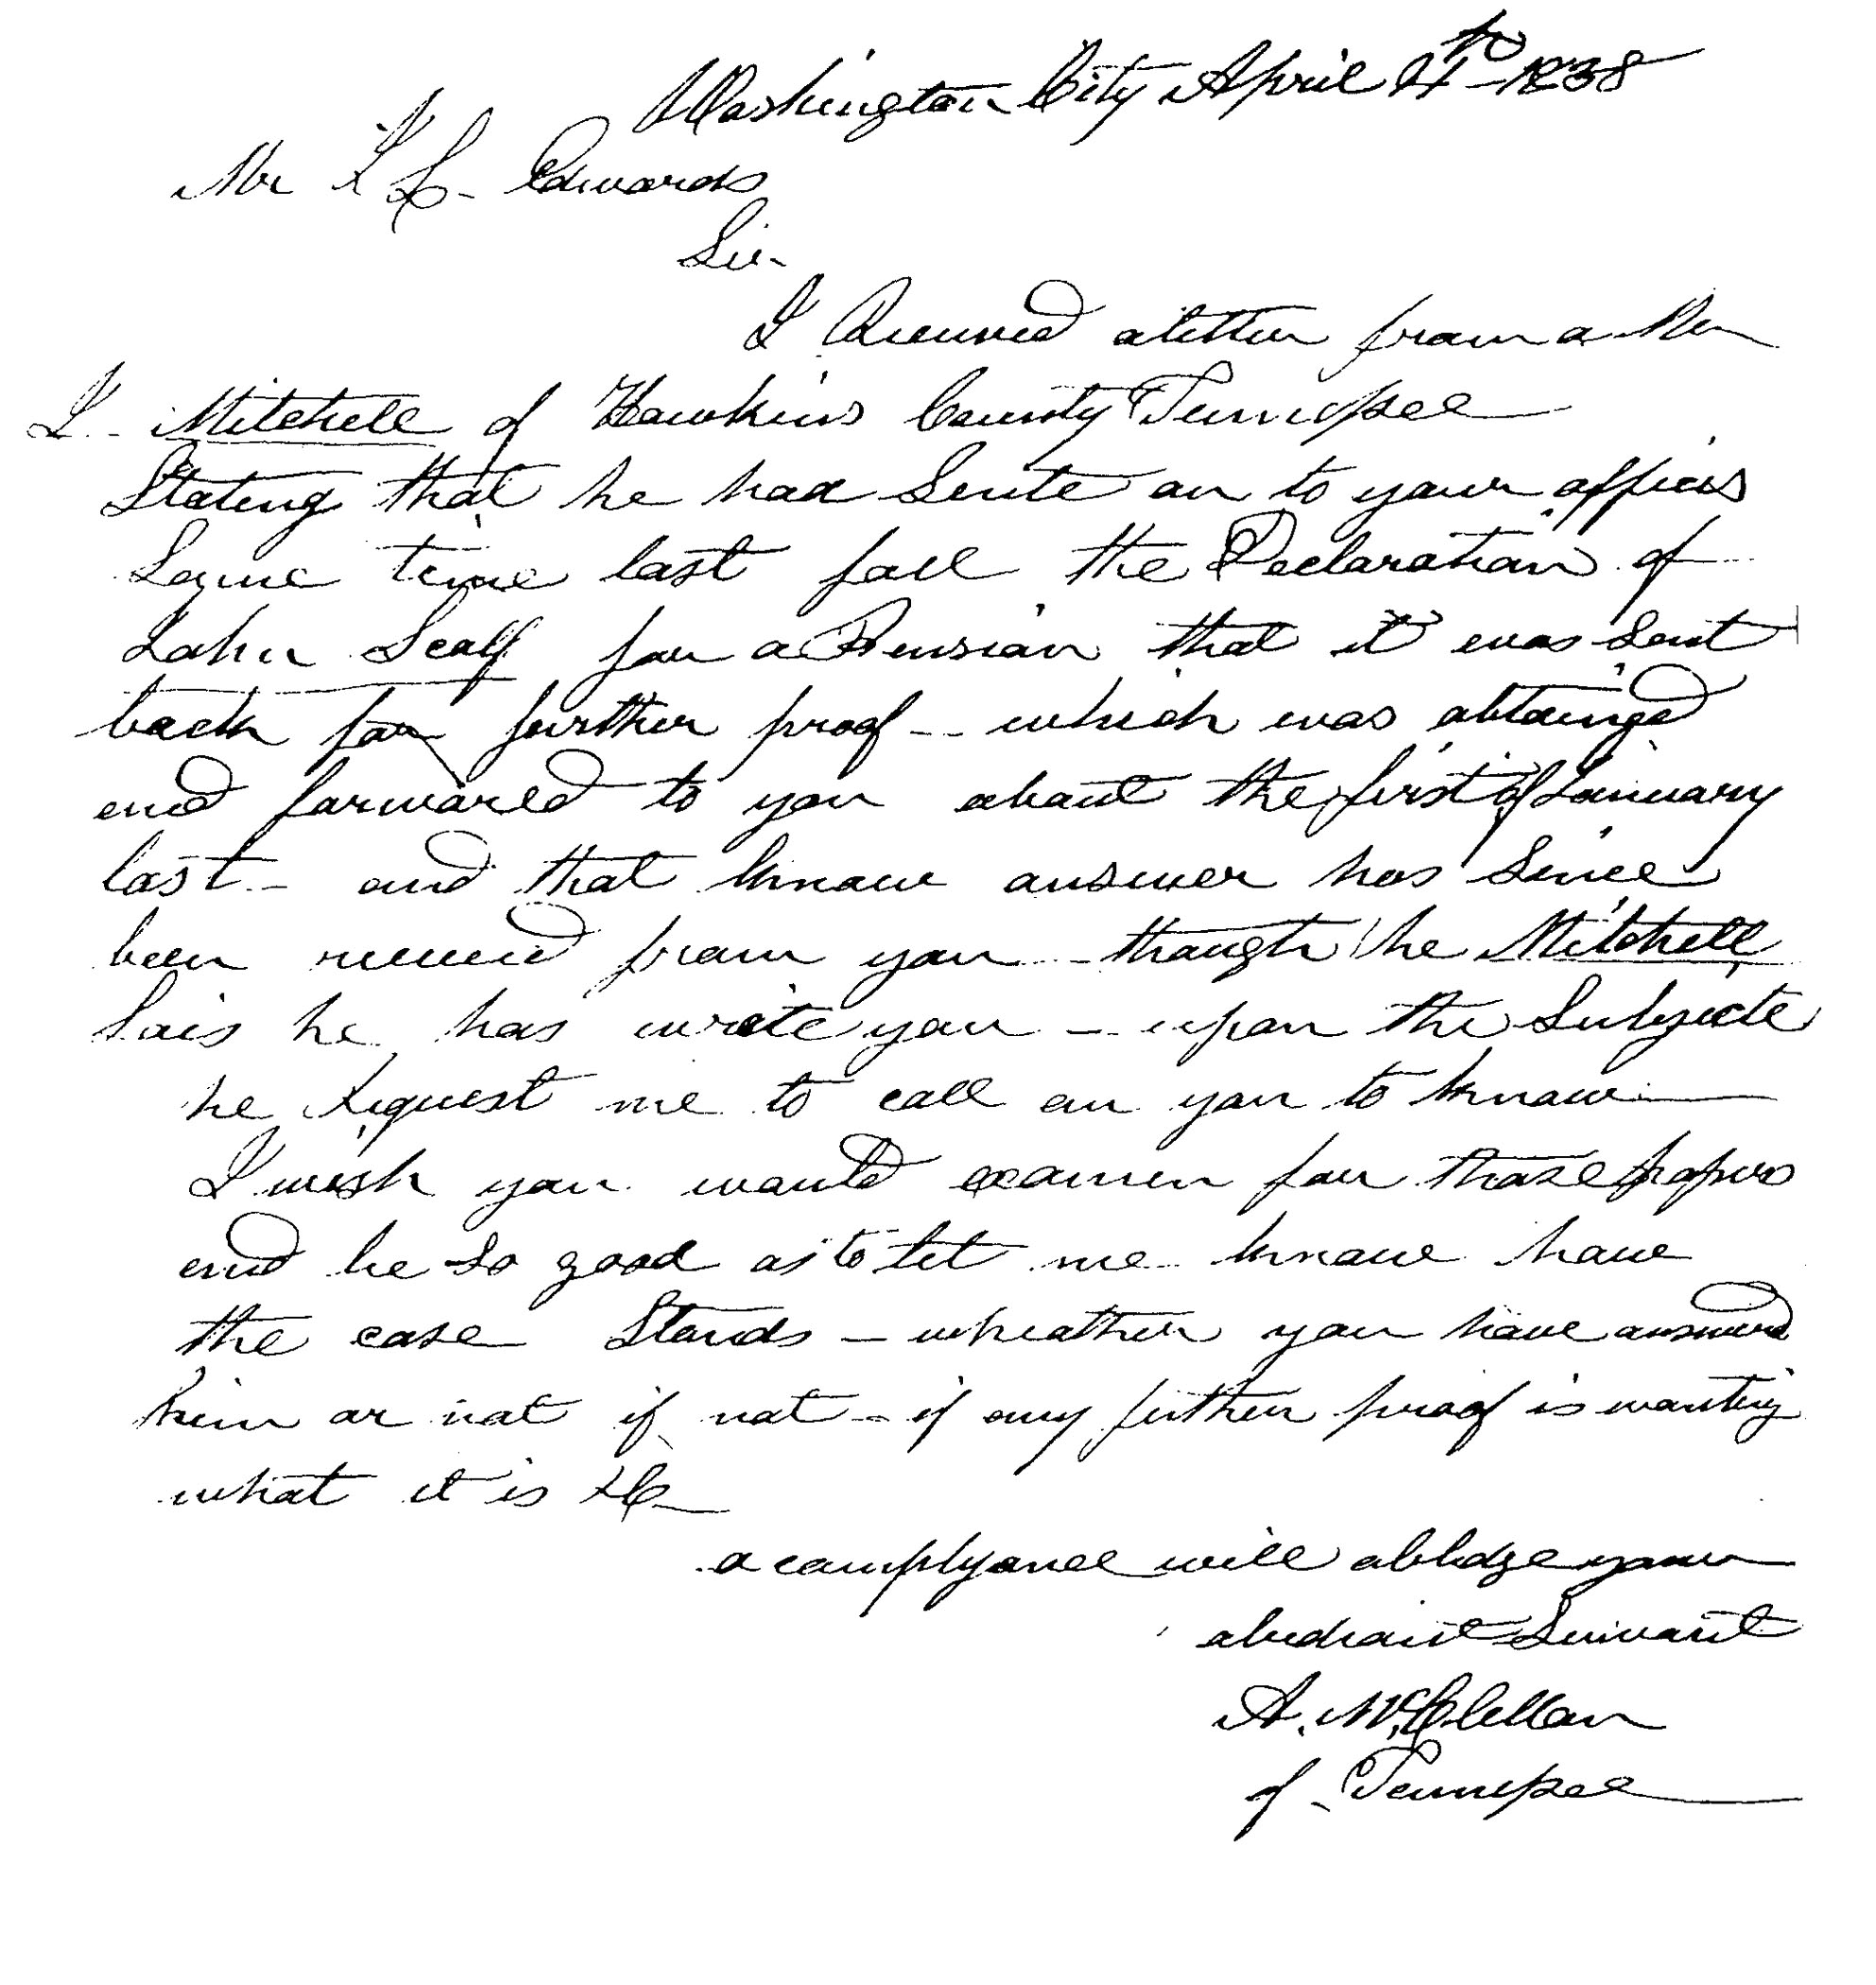 Washington City April 4th 1838
Mr J L. Edwards
Sir-
I Received a letter from a Mr
J. Mitchell of Hawkins County Tennessee
Stating that he had Sente on to your offices
Some time last fall the Declaration of
John Scalf for a Pension that it was sent
back for further proof -- which was obtained
and forwared to you about the first of January
last - and that know answer has Since
been received from you - though he Mitchell
Sais he has write you - upon the Subjecte
he Request me to call on you to know
I wish you would examen for those papers
and be so good as to let me know how
the case Stands - wheather you have answerd
him or not if not - if any further proof is wanting
what it is &C
a complyance will oblidge your
obediant Servant
A. McClellan
of - Tennessee